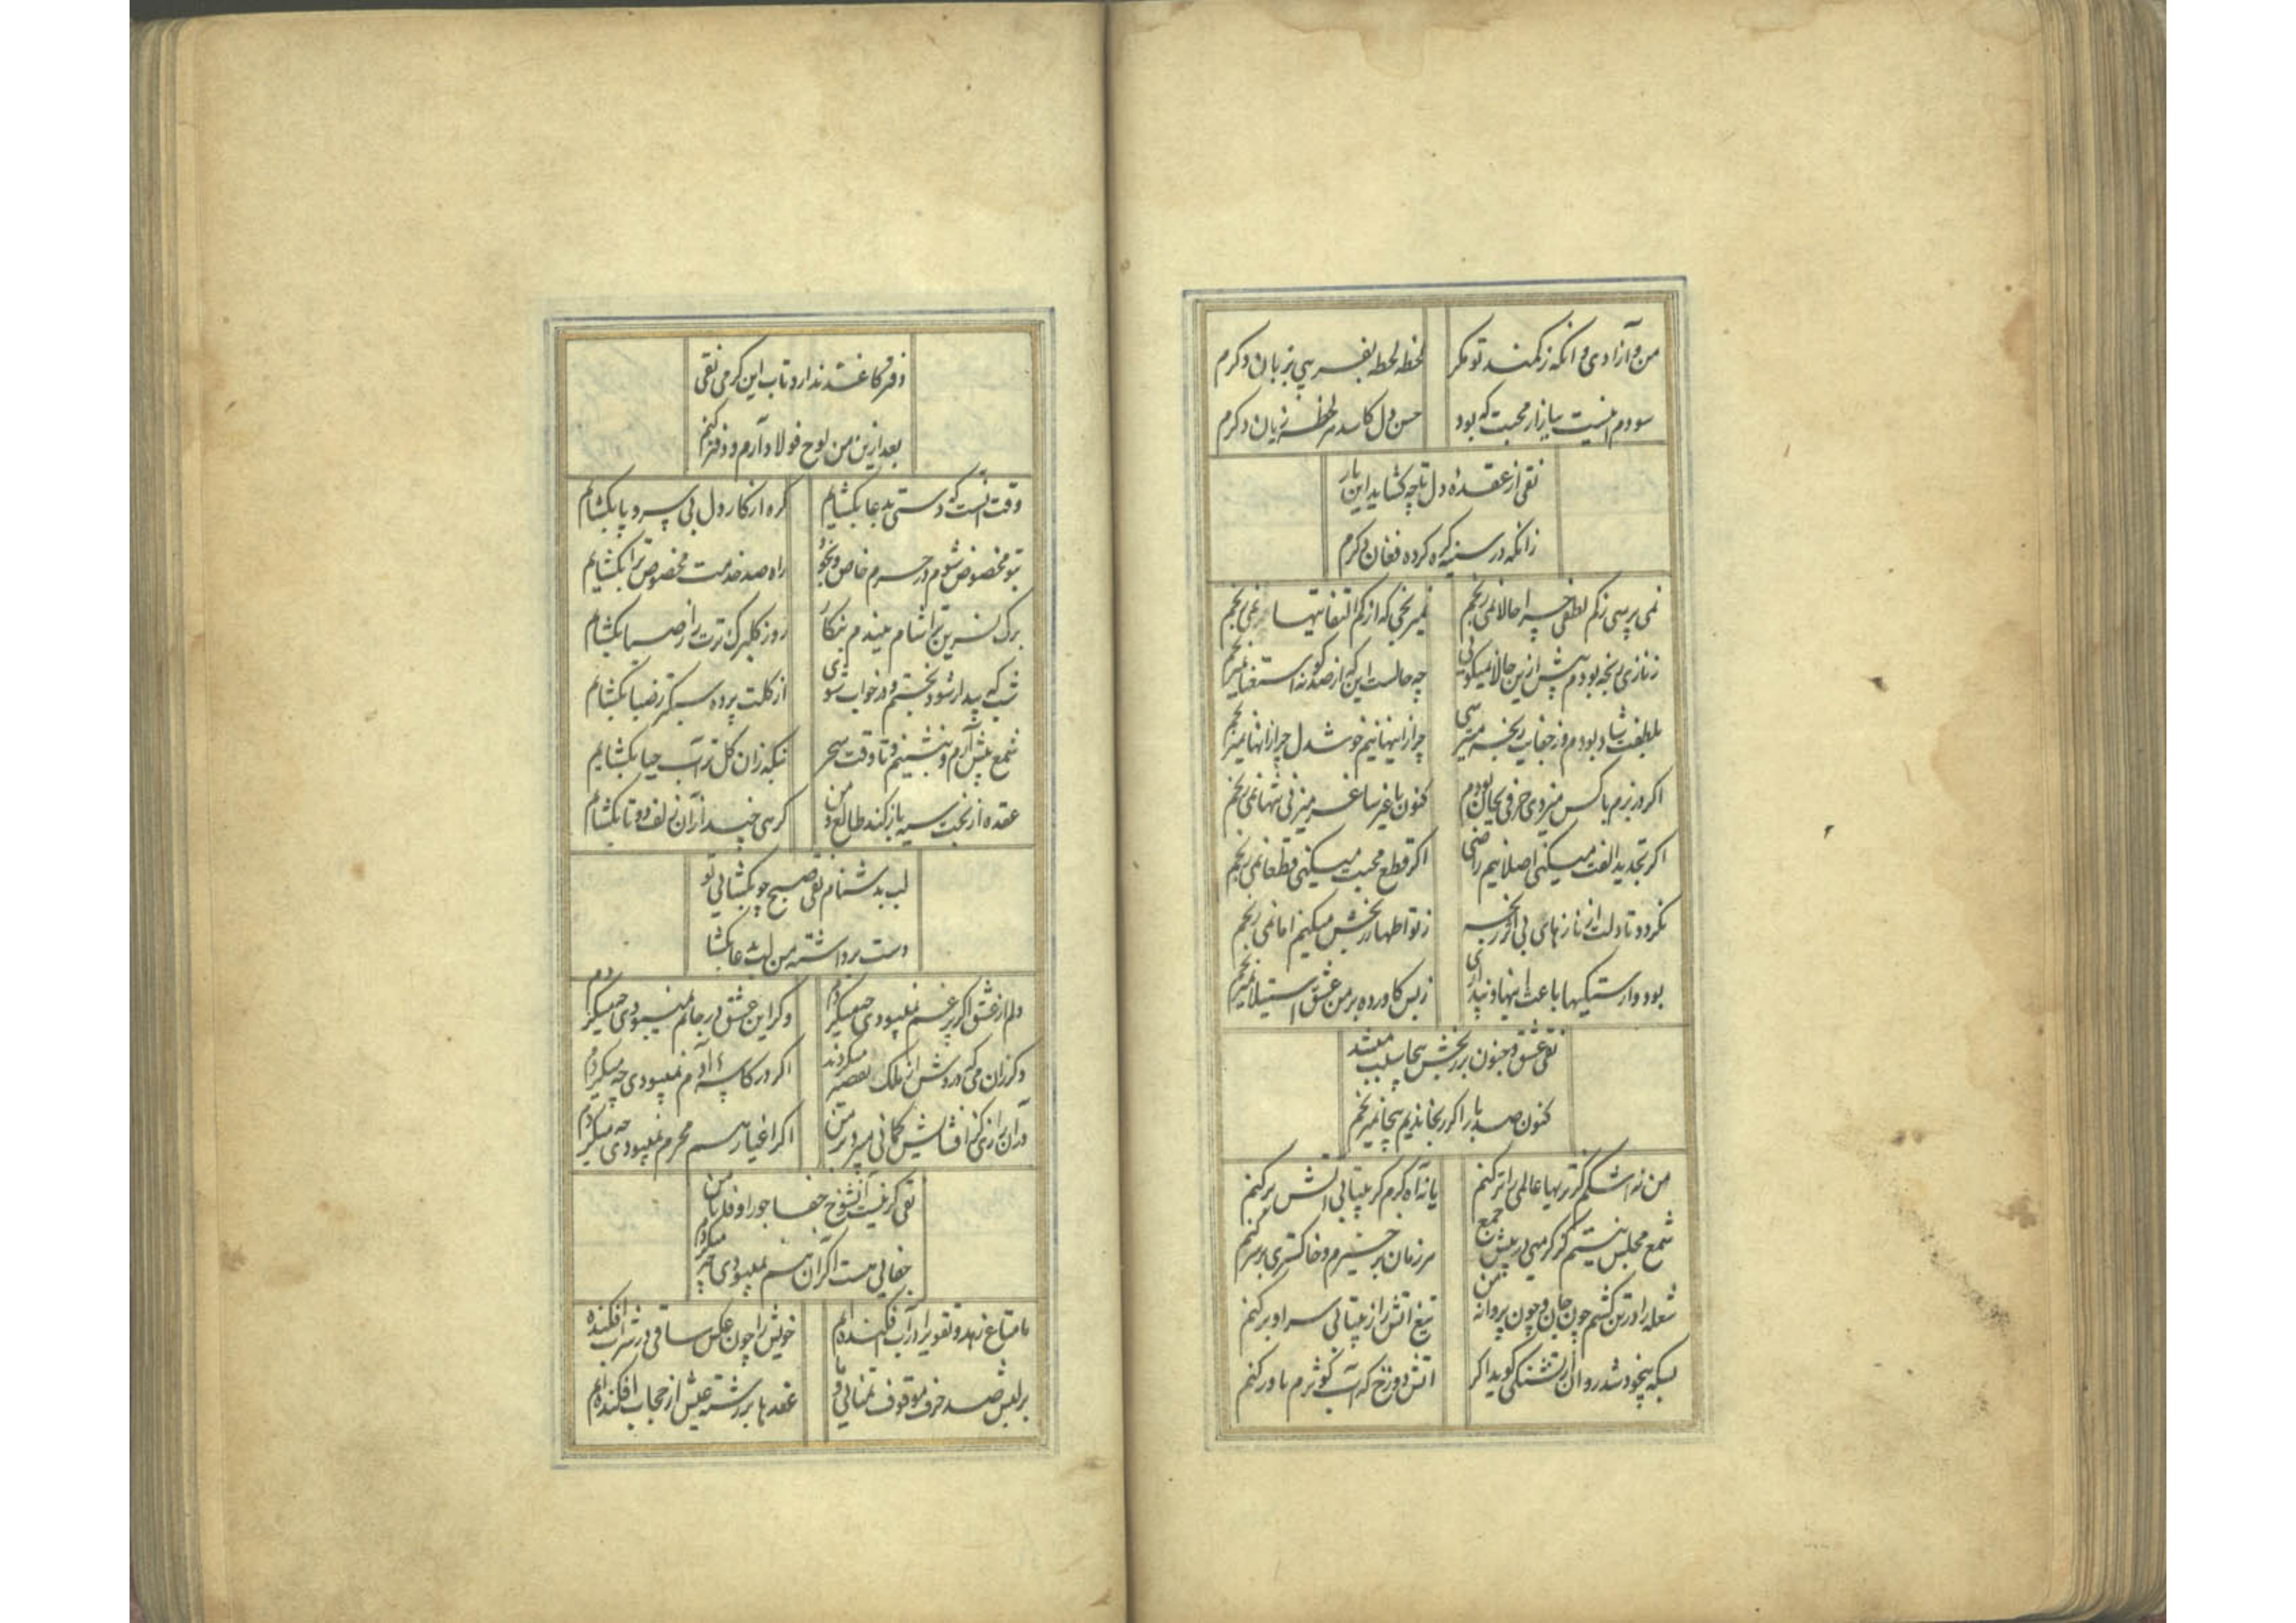 من و آزادی و انکه ز کمند تو مکر
لحظه لحظه بفریبی بزبان دکرم
سودم اینست ببازار محبت که بود
جنس دل کاسد و هر لحظه زیان دکرم
نقی از عقدهٔ دل تا چه کشاید این بار
زانکه در سینه کره کرده فغان دکرم
نمی پرسی ز کم لطفی چرا حالا نمی رنجم
نمیرنجی که از کم التفاتیها نمی رنجم
ز نازی رنجه بودم پیش ازین حالا نمیکوئی
چه حالست این که از صد کونه استغنا نمیرنجم
بلطفت شاد بودم وز جفایت رنجه میپرسی
چرا زاینها نیم خوشدل چرا زانها نمیرنجم
اکر در بزم با کس میزدی حرفی بجان بودم
کنون با غیر ساغر میزنی تنها نمی رنجم
اکر تجدید الفت میکنی اصلا نیم راضی
اکر قطع محبت میکنی قطعا نمی رنجم
نکردد تا دلت از نازهای بی اثر رنجه
ز تو اظهار رنجش میکنم اما نمی رنجم
بود وارستکیها باعث اینها و پنداری
ز بس کاورده بر من عشق استیلا نمیرنجم
نقی عشق و جنون بر رنجش بیجا سبب میشد
کنون صد بار اکر رنجاندیم بیجا نمیرنجم
من نه اشکم کز تریها عالمی را تر کنم
یا نه آه کرم کز بیتابی آتش بر کنم
شمع مجلس نیستم کز کرمیی در پیش جمع
هر زمان بر خیزم و خاکستری بر سر کنم
شعله را در تن کشم چون جان و چون پروانه من
تیغ اتش را ز بیتابی سراو بر کنم
بسکه بیخود شد روان از تشنکی کوید اکر
اتش دوزخ که آب کوثرم باور کنم
دفتر کاغذ ندارد تاب این کرمی نقی
بعد ازین من لوح فولاد آرم و دفتر کنم
وقت انست که دستی بدعا بکشایم
کره از کار دل بی سر و پا بکشایم
بتو مخصوص شوم در حرم خاص و بخود
راه صد خدمت مخصوص ترا بکشایم
برک نسرین ترا شام ببندم بنکار
روز کلبرک ترت را ز صبا بکشایم
شب که بیدار شود بختم و در خواب شوی
از کلت پرده سبکتر ز صبا بکشایم
شمع پیش آرم و بنشینم و تا وقت سحر
تکمه زان کل تر آب حیا بکشایم
عقده از بخت سیه باز کند طالع و من
کرهی چند از آن زلف دو تا بکشایم
لب بدشنام نقی صبح چو بکشائی تو
دست برداشته من لب بدعا بکشا
دلم از عشق اکر پر غم نمیبودی چه میکردم
وکر این عشق در جانم نمیبودی چه میکردم
دکر زان می که دردش از ملک میکردند
اکر در کاسهٔ آدم نمیبودی چه میکردم
در آن رازی کز افشایش کمانی میبرد بر من
اکر اغیار هم محرم نمیبودی چه میکردم
نقی کر نیست آنشوخ جفا جو را وفا با من
جفائی هست اکر آن هم نمیبودی چه میکردم
ما متاع زهد و تقوی را در آب افکنده ایم
خویش را چون عکس ساقی در شراب افکنده
بر لبش صد حرف موقوف تمنائی و ما
عقدها بر رشته عیش از حجاب افکنده ایم